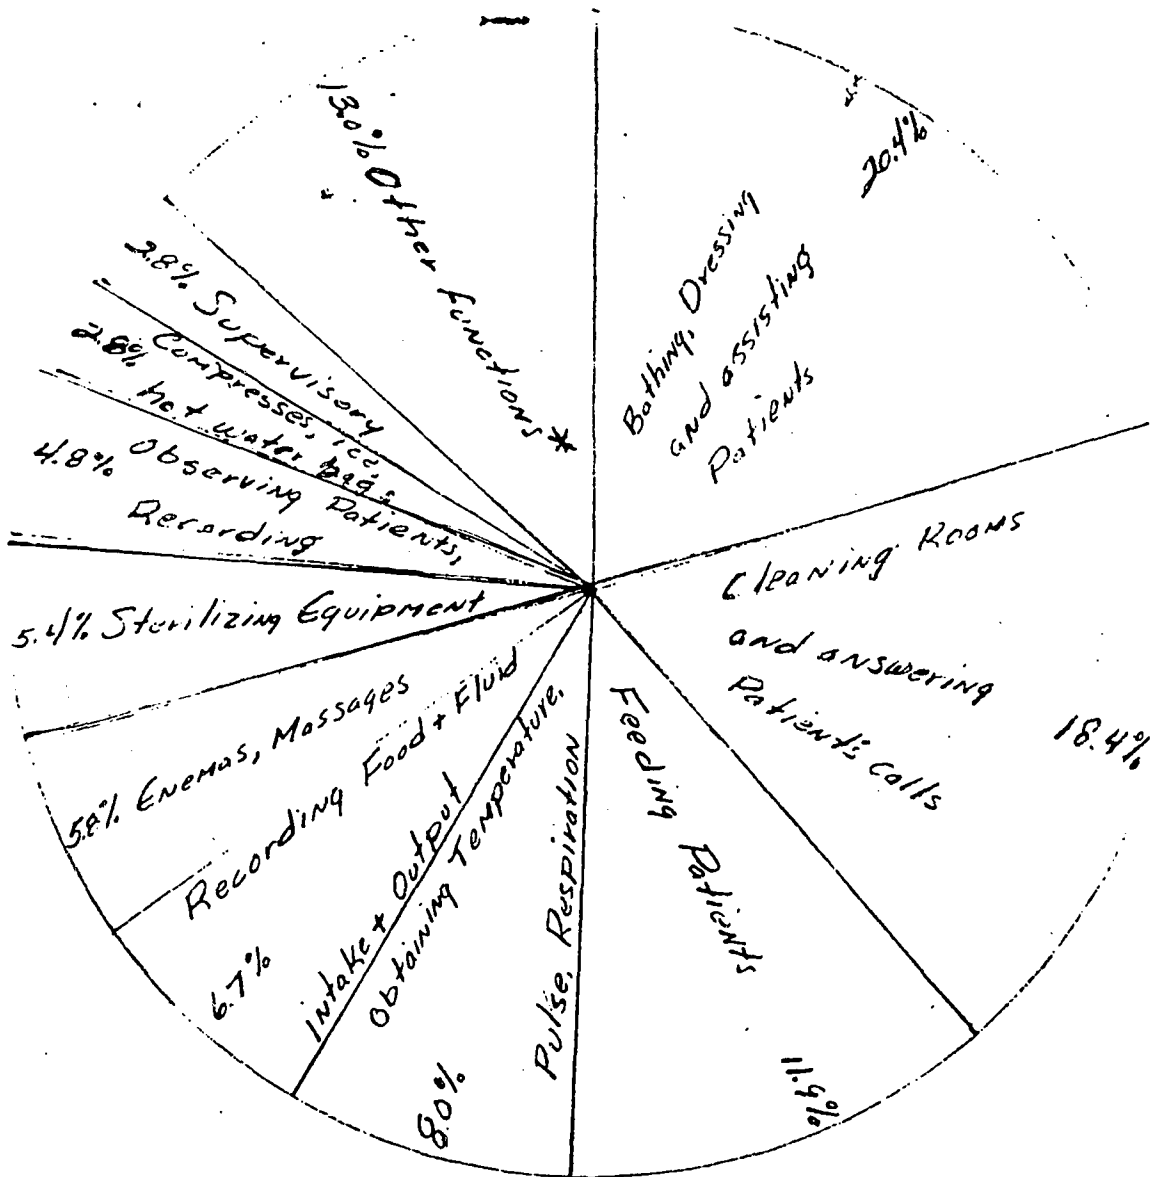 20.4%
Bathing, Dressing
and assisting
Patients
Cleaning Rooms
and answering
Patient's calls
18.4%
Feeding Patients
11.9%
Obtaining Temperature,
Pulse, Respiration
8.0%
Recording Food + Fluid
intake + Output
6.7%
5.8% Enemas, Massages
5.4% Sterilizing Equipment
4.8% Observing Patients,
Recording
2.8% Compresses, ice
hot water bags
2.8% Supervisory
13.0% Other functions *